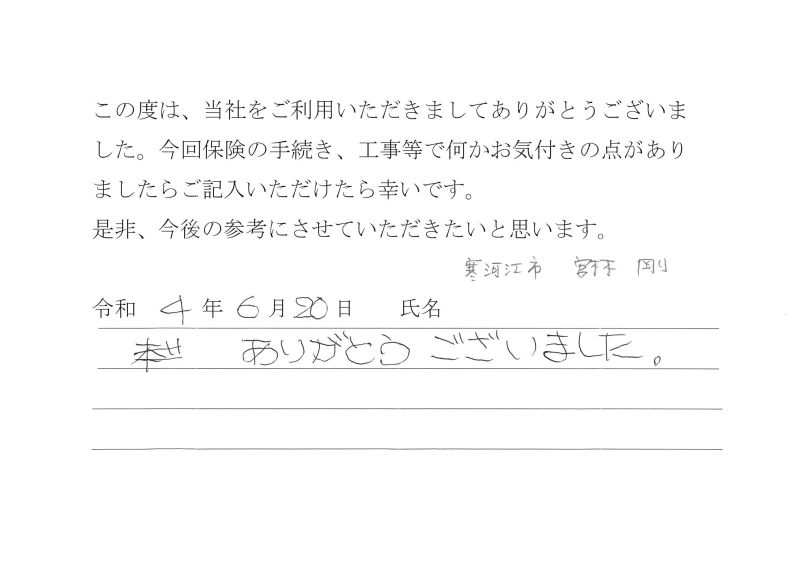 この度は、当社をご利用いただきましてありがとうございま
した。今回保険の手続き、工事等で何かお気付きの点があり
ましたらご記入いただけたら幸いです。
是非、今後の参考にさせていただきたいと思います。
寒河江市 宮林 剛
令和 4 年 6 月 20 日 氏名
ありがとう ございました。